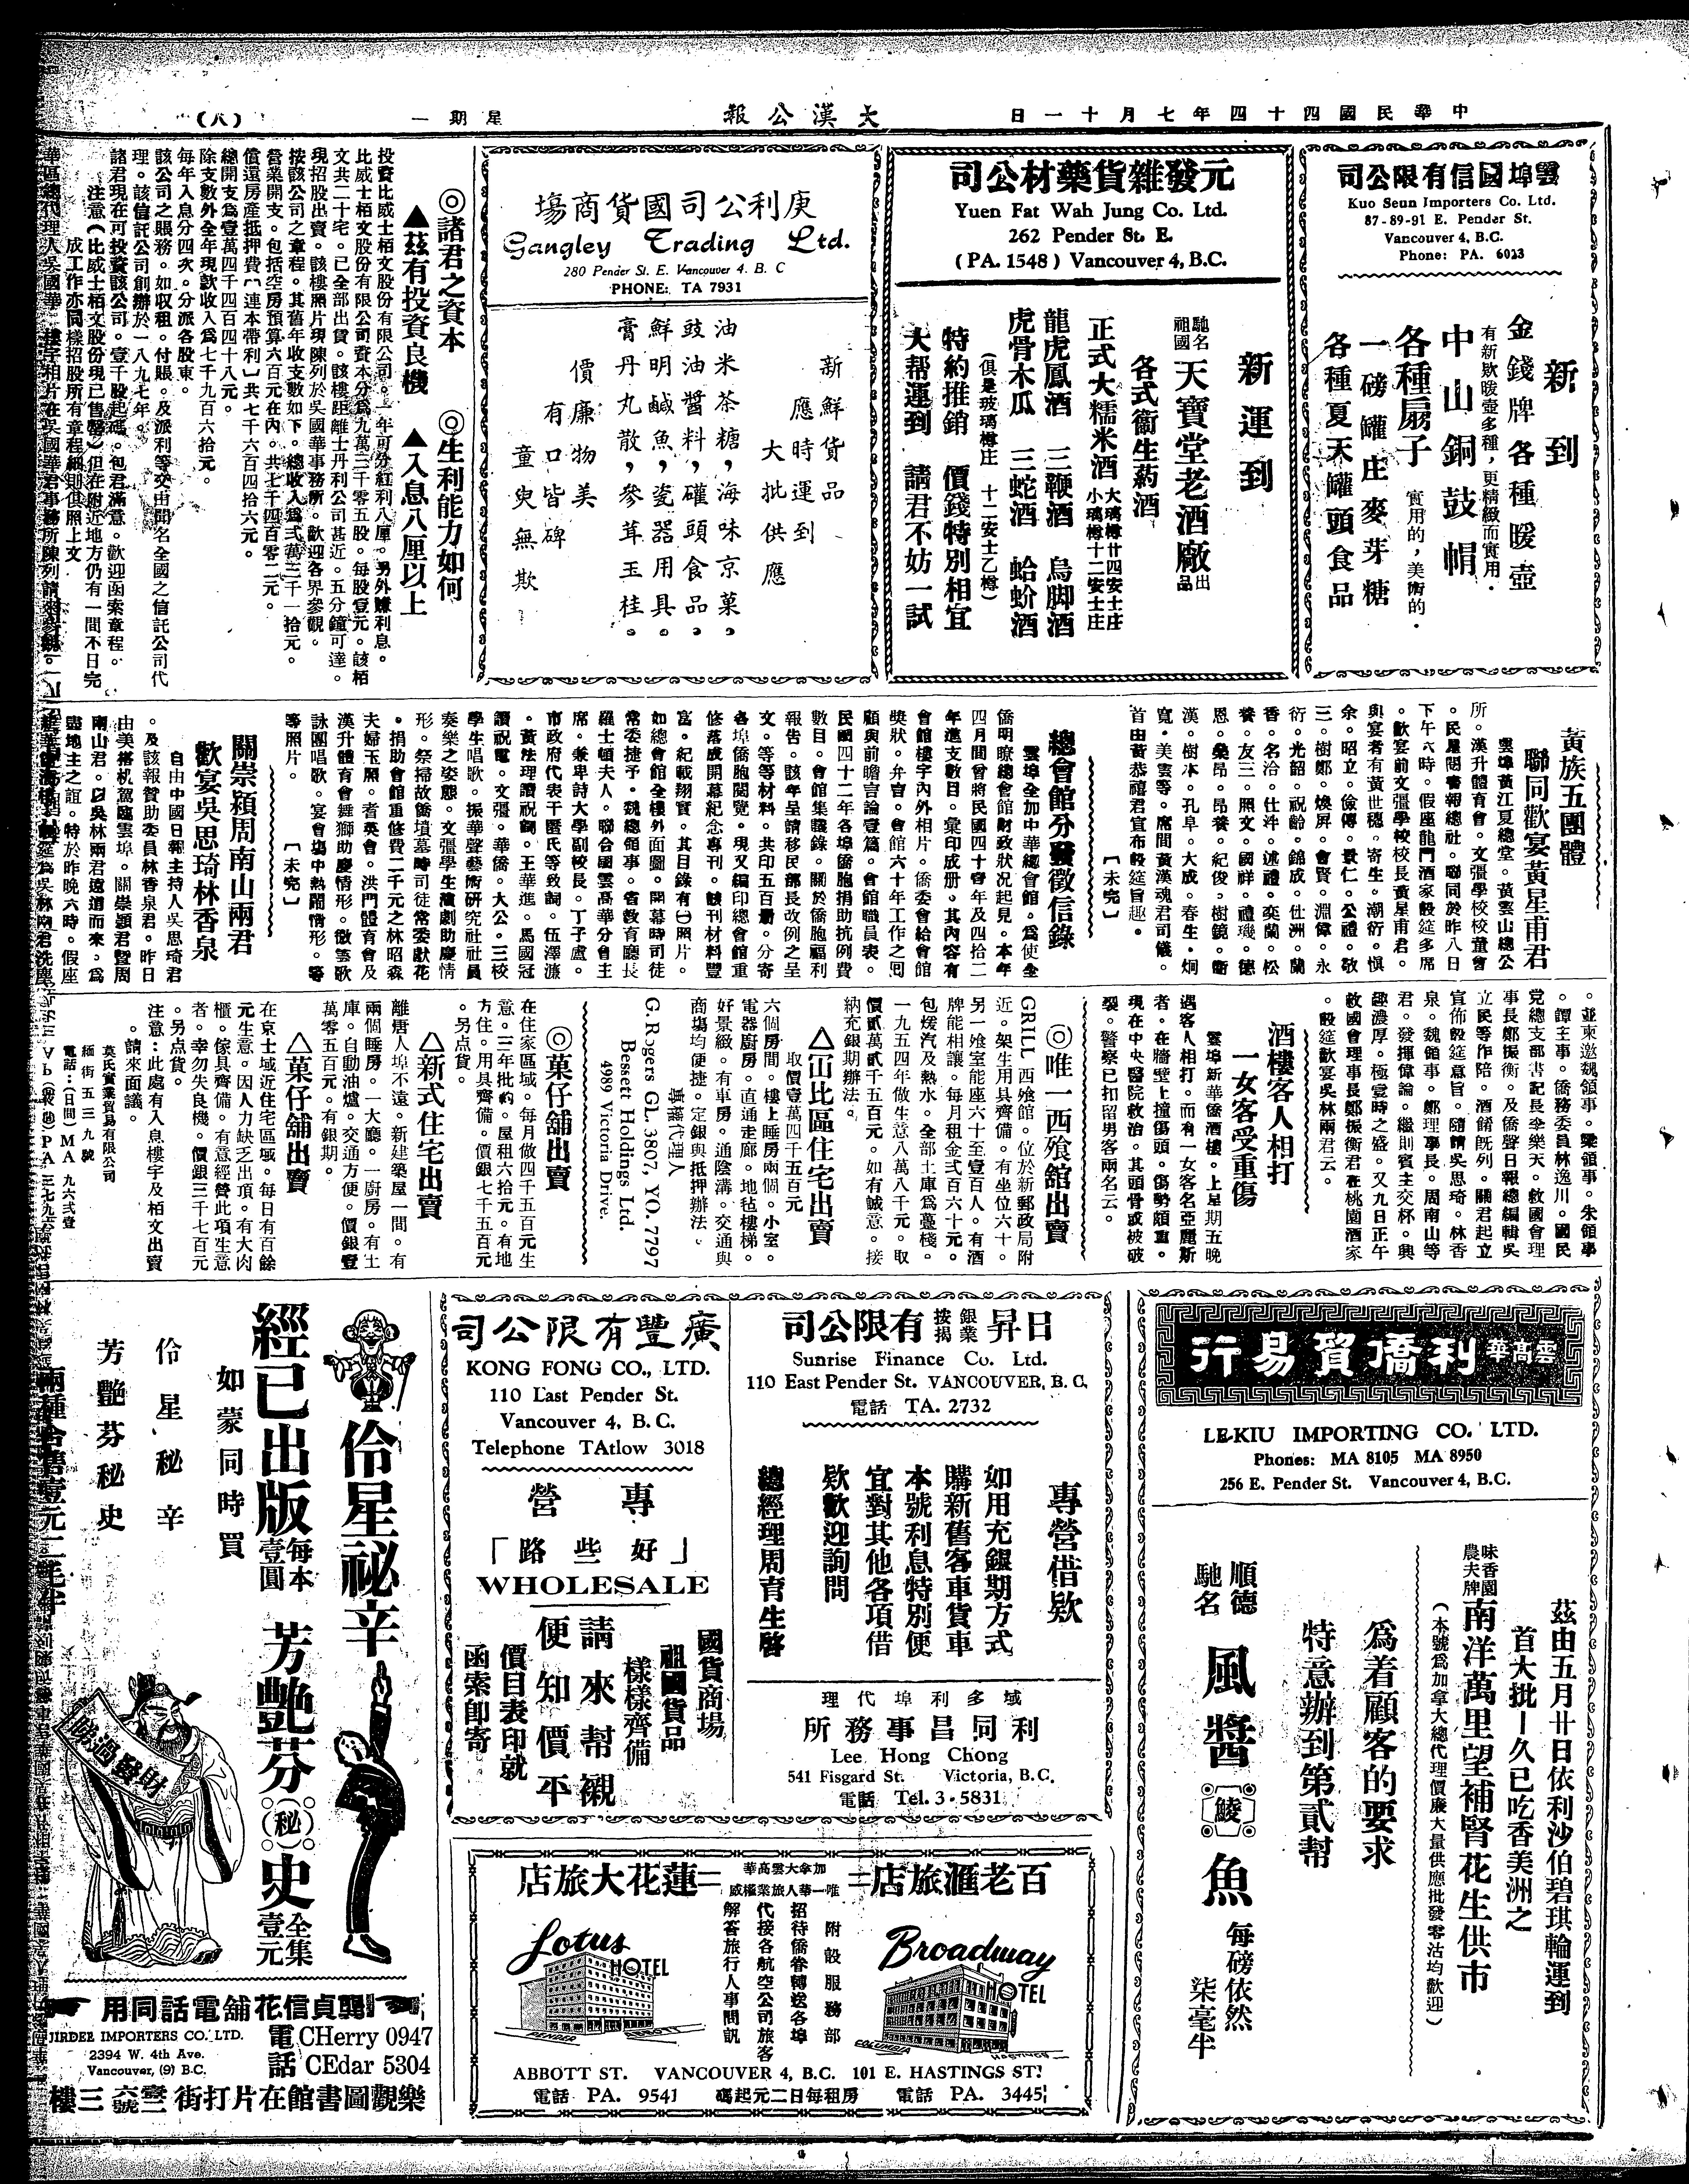 中華民國四十四年七月十一日
大漢公報
星期一
（八）
雲埠國信有限公司
Kuo Seun Importers Co. Ltd.
87-89-91 E. Pender St.
Vancouver 4, B.C.
Phone: PA. 6023
新到
金錢牌各種暖壺
有新欵暖壺多種，更精緻而實用．
中山銅鼓帽
各種扇子
實用的，美術的．
一磅罐庄麥芽糖
各種夏天罐頭食品
元發雜貨藥材公司
Yuen Fat Wah Jung Co. Ltd.
262 Pender St. E.
(PA. 1548) Vancouver 4, B.C.
新運到
馳名祖國天寶堂老酒廠出品
各式衞生葯酒
正式大糯米酒
大璃樽廿四安士庄
小璃樽十二安士庄
龍虎鳳酒 三鞭酒 烏脚酒
虎骨木瓜 三蛇酒 蛤蚧酒
（俱是玻璃樽庄 十二安士乙樽）
特約推銷 價錢特別相宜
大帮運到 請君不妨一試
庚利公司國貨商場
Gangley Trading Ltd.
280 Pender St. E. Vancouver 4. B. C
PHONE: TA 7931
新鮮貨品
應時運到
大批供應
油米茶糖，海味京菓。
豉油醬料，罐頭食品。
鮮明鹹魚，瓷器用具。
膏丹丸散，參茸玉桂。
價廉物美
有口皆碑
童叟無欺
◎諸君之資本 ◎生利能力如何
▲茲有投資良機 ▲入息八厘以上
投資比威士栢文股份有限公司。一年可分紅利八厘。另外賺利息。
比威士栢文股份有限公司資本分爲九萬三千零五股。每股壹元。該栢
文共二十宅。已全部出賃。該樓距離士丹利公司甚近。五分鐘可達。
現招股出賣。該樓照片現陳列於吳國華事務所。歡迎各界參觀。
按該公司之章程。其舊年收支數如下。總收入爲弍萬三千一拾元。
營業開支。包括空房預算六百元在內。共七千四百零二元。
償還房產抵押費〔連本帶利〕共七千六百四拾六元。
總開支爲壹萬四千四百四十八元。
除支數外全年現欵收入爲七千九百六拾元。
每年入息分四次。分派各股東。
該公司之賬務。如収租。付賬。及派利等交由聞名全國之信託公司代
理。該信託公司創辦於一八九七年。
諸君現在可投資該公司。壹千股起碼。包君滿意。歡迎函索章程。
注意（比威士栢文股份現已售罄）但在附近地方仍有一間不日完
成工作亦同樣招股所有章程細則俱照上文
華區總代理人吳國華 樓宇相片在吳國華君事務所陳列請來參觀。
黃族五團體
聯同歡宴黃星甫君
雲埠黃江夏總堂。黃雲山總公
所。漢升體育會。文彊學校校董會
。民星閱書報總社。聯同於昨八日
下午六時。假座龍門酒家設筵多席
。歡宴前文彊學校校長黃星甫君。
與宴者有黃世穗。寄生。潮衍。愼
余。昭立。儉傅。景仁。公禮。敬
三。樹鄭。煥屏。會賢。淵偉。永
衍。光韶。祝齡。錦成。仕洲。蘭
香。名洽。仕泮。述禮。奕蘭。松
養。友三。照文。國祥。禮璣。德
恩。燊昂。昂養。紀俊。樹鏡。衛
漢。樹本。孔阜。大成。春生。炯
寬。美雲等。席間黃漢魂君司儀。
首由黃恭禧君宣布設筵旨趣。
〔未完〕
總會館分發徵信錄
雲埠全加中華總會館。爲使全
僑明瞭總會館財政狀况起見。本年
四月間曾將民國四十壹年及四拾二
年進支數目。彙印成册。其內容有
會館樓宇內外相片。僑委會給會館
獎狀。弁言。會館六十年工作之囘
顧與前瞻言論壹篇。會館職員表。
民國四十二年各埠僑胞捐助抗例費
數目。會館集議錄。關於僑胞福利
報告。該年呈請移民部長改例之呈
文。等等材料。共印五百册。分寄
各埠僑胞閱覽。現又編印總會館重
修落成開幕紀念專刊。該刊材料豐
富。紀載翔實。其目錄有㈠照片。
如總會館全樓外面圖。開幕時司徒
常委捷予。魏總領事。省敎育廳長
羅士頓夫人。聯合國雲高華分會主
席。兼卑詩大學副校長。丁子盧。
市政府代表干匿氏等致詞。伍澤濂
。黃法理讀祝詞。王華進。馬國冠
讀祝電。文彊。華僑。大公。三校
學生唱歌。振華聲藝術研究社社員
奏樂之姿態。文彊學生演劇助慶情
形。祭掃故僑墳墓時司徒常委獻花
。捐助會館重修費二千元之林昭森
夫婦玉照。耆英會。洪門體育會及
漢升體育會舞獅助慶情形。徵雲歌
詠團唱歌。宴會塲中熱鬧情形。等
等照片。 〔未完〕
關崇潁周南山兩君
歡宴吳思琦林香泉
自由中國日報主持人吳思琦君
。及該報贊助委員林香泉君。昨日
由美搭机駕臨雲埠。關崇潁君曁周
南山君。以吳林兩君遠道而來。爲
盡地主之誼。特於昨晚六時。假座
。並柬邀魏領事。梁領事。朱領事
。譚主事。僑務委員林逸川。國民
黨總支部書記長伞樂天。救國會理
事長鄭振衡。及僑聲日報總編輯吳
立民等作陪。酒餚旣列。關君起立
宣佈設筵意旨。隨請吳思琦。林香
泉。魏領事。鄭理事長。周南山等
君。發揮偉論。繼則賓主交杯。興
趣濃厚。極壹時之盛。又九日正午
救國會理事長鄭振衡君在桃園酒家
。設筵歡宴吳林兩君云。
酒樓客人相打
一女客受重傷
雲埠新華僑酒樓。上星期五晚
遇客人相打。而有一女客名亞麗斯
者。在牆壁上撞傷頭。傷勢頗重。
現在中央醫院救治。其頭骨或被破
裂。警察已扣留男客兩名云。
◎唯一西飱舘出賣
GRILL 西飱館。位於新郵政局附
近。架生用具齊備。有坐位六十。
另一飱室能座六十至壹百人。有酒
牌能相讓。每月租金式百六十元。
包煖汽及熱水。全部土庫爲薹棧。
一九五四年做生意八萬八千元。取
價貳萬貳千五百元。如有誠意。接
納充銀期辦法。
△冚比區住宅出賣
取價壹萬四千五百元
六個房間。樓上睡房兩個。小室。
電器廚房。直通走廊。地毡樓梯。
好景緻。有車房。通陰溝。交通與
商塲均便捷。定銀與抵押辦法。
專權代理人
G. Rogers GL. 3807, YO. 7797
Bessett Holdings Ltd.
4989 Victoria Drive.
◎菓仔舖出賣
在住家區域。每月做四千五百元生
意。三年批約。屋租六拾元。有地
方住。用具齊備。價銀七千五百元
。另点貨。
△新式住宅出賣
離唐人埠不遠。新建築屋一間。有
兩個睡房。一大廳。一廚房。有土
庫。自動油爐。交通方便。價銀壹
萬零五百元。有銀期。
△菓仔舖出賣
在京士域近住宅區域。每日有百餘
元生意。因人力缺乏出頂。有大肉
櫃。傢具齊備。有意經營此項生意
者。幸勿失良機。價銀三千七百元
。另点貨。
注意：此處有入息樓宇及栢文出賣
。請來面議。
莫氏實業貿易有限公司
緬街五三九號
電話：（日間）MA 九六弍壹
雲高華利僑貿易行
LE-KIU IMPORTING CO. LTD.
Phones: MA 8105 MA 8950
256 E. Pender St. Vancouver 4, B.C.
茲由五月廿日依利沙伯碧琪輪運到
首大批—久已吃香美洲之
味香園農夫牌南洋萬里望補腎花生供市
（本號爲加拿大總代理價廉大量供應批發零沽均歡迎）
爲着顧客的要求
特意辦到第貳幇
順德馳名 風醬鯪魚 每磅依然柒毫半
日昇銀業按揭有限公司
Sunrise Finance Co. Ltd.
110 East Pender St. VANCOUVER, B. C.
電話 TA. 2732
專營借欵
如用充銀期方式
購新舊客車貨車
本號利息特別便
宜對其他各項借
欵歡迎詢問
總經理周育生啓
域多利埠代理
利同昌事務所
Lee Hong Chong
541 Fisgard St. Victoria, B.C.
電話 Tel. 3-5831
廣豐有限公司
KONG FONG CO., LTD.
110 East Pender St.
Vancouver 4, B.C.
Telephone TAtlow 3018
專營
「好些路」
WHOLESALE
國貨商場
祖國貨品
樣樣齊備
請來幫襯
便知價平
價目表印就
函索卽寄
百老滙旅店
加拿大雲高華
唯一華人旅業權威
蓮花大旅店
Broadway HOTEL
COLUMBIA
HASTINGS
附設服務部
招待僑眷轉送各埠
代接各航空公司旅客
解答旅行人事問訊
Lotus HOTEL
PENDER
ABBOTT
ABBOTT ST. VANCOUVER 4, B.C. 101 E. HASTINGS ST.
電話 PA. 9541
房租每日二元起碼
電話 PA. 3445
伶星祕辛
經已出版 每本壹圓
芳艷芬（秘）史 全集壹元
如蒙同時買
伶星秘辛
芳艷芬秘史
兩種合售壹元二毫半
睇過發財
龔貞信花舖電話同用
JIRDEE IMPORTERS CO. LTD.
2394 W. 4th Ave.
Vancouver, (9) B.C.
電話
CHerry 0947
CEdar 5304
樂觀圖書館在片打街壹六號三樓